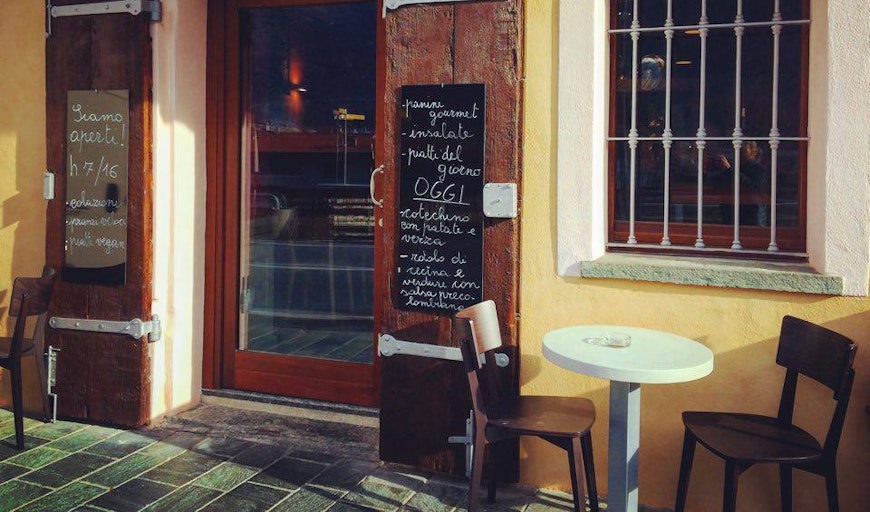 Siamo
aperti!
h 7/16
- colazioni
- pranzi veloci
- piatti vegan
- panini
gourmet
- insalate
- piatti del
giorno
OGGI
- cotechino
con patate e
verza
- rotolo di
e
verdure con
salsa preco-
lombiana